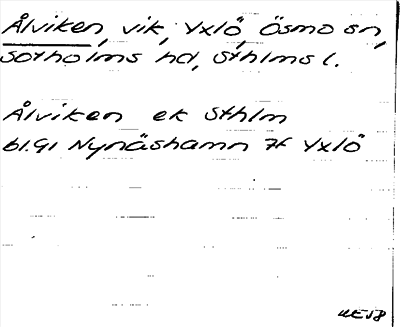 Ålviken, vik, Yxlö, Ösmo sn,
Sotholms hd, Sthlms l.
Ålviken ek Sthlm
bl.91 Nynäshamn 7f Yxlö